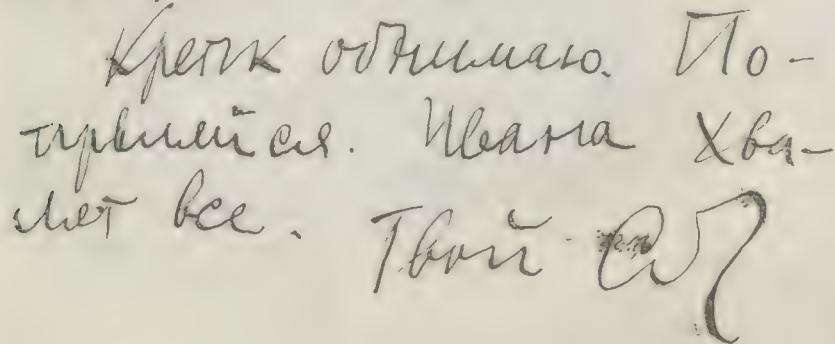 Крепк обнимаю. По-
правляйся. Ивана хва-
лят все. Твой